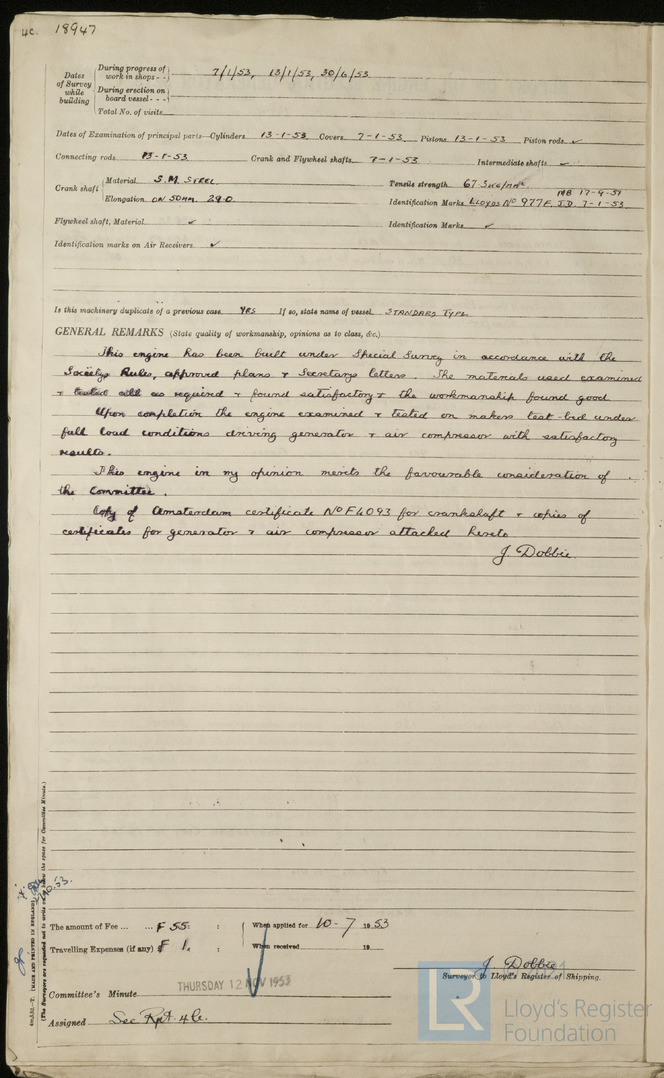 4c. 18947
Dates of Survey while building
During progress of work in shops - - 7/1/53, 13/1/53, 30/6/53
During erection on board vessel - - -
Total No. of visits
Dates of Examination of principal parts—Cylinders 13-1-53 Covers 7-1-53 Pistons 13-1-53 Piston rods ✓
Connecting rods 13-1-53 Crank and Flywheel shafts 7-1-53 Intermediate shafts ✓
Crank shaft Material S.M. STEEL Tensile strength 67.5 KG/MM²
Elongation ON 50MM. 29.0 Identification Marks LLOYDS No 977F. J.D. 7-1-53
Flywheel shaft, Material ✓ Identification Marks ✓
Identification marks on Air Receivers ✓
Is this machinery duplicate of a previous case YES If so, state name of vessel STANDARD TYPE
GENERAL REMARKS (State quality of workmanship, opinions as to class, &c.)
This engine has been built under Special Survey in accordance with the
Society's Rules, approved plans & Secretary's letters. The materials used examined
& tested all as required & found satisfactory & the workmanship found good
Upon completion the engine examined & tested on makers test bed under
full load conditions driving generator & air compressor with satisfactory
results.
This engine in my opinion merits the favourable consideration of
the Committee.
Copy of Amsterdam certificate No F4093 for crankshaft & copies of
certificates for generator & air compressor attached hereto
J. Dobbie.
The amount of Fee ... ... F 55: : When applied for 10-7 1953
Travelling Expenses (if any) F 1. : When received 19
J. Dobbie
Surveyor to Lloyd's Register of Shipping.
Committee's Minute THURSDAY 12 NOV 1953
Assigned See Rpt. 4c.
(MADE AND PRINTED IN ENGLAND)
(The Surveyors are requested not to write on the space for Committee Minute.)
LR
Lloyd's Register
Foundation